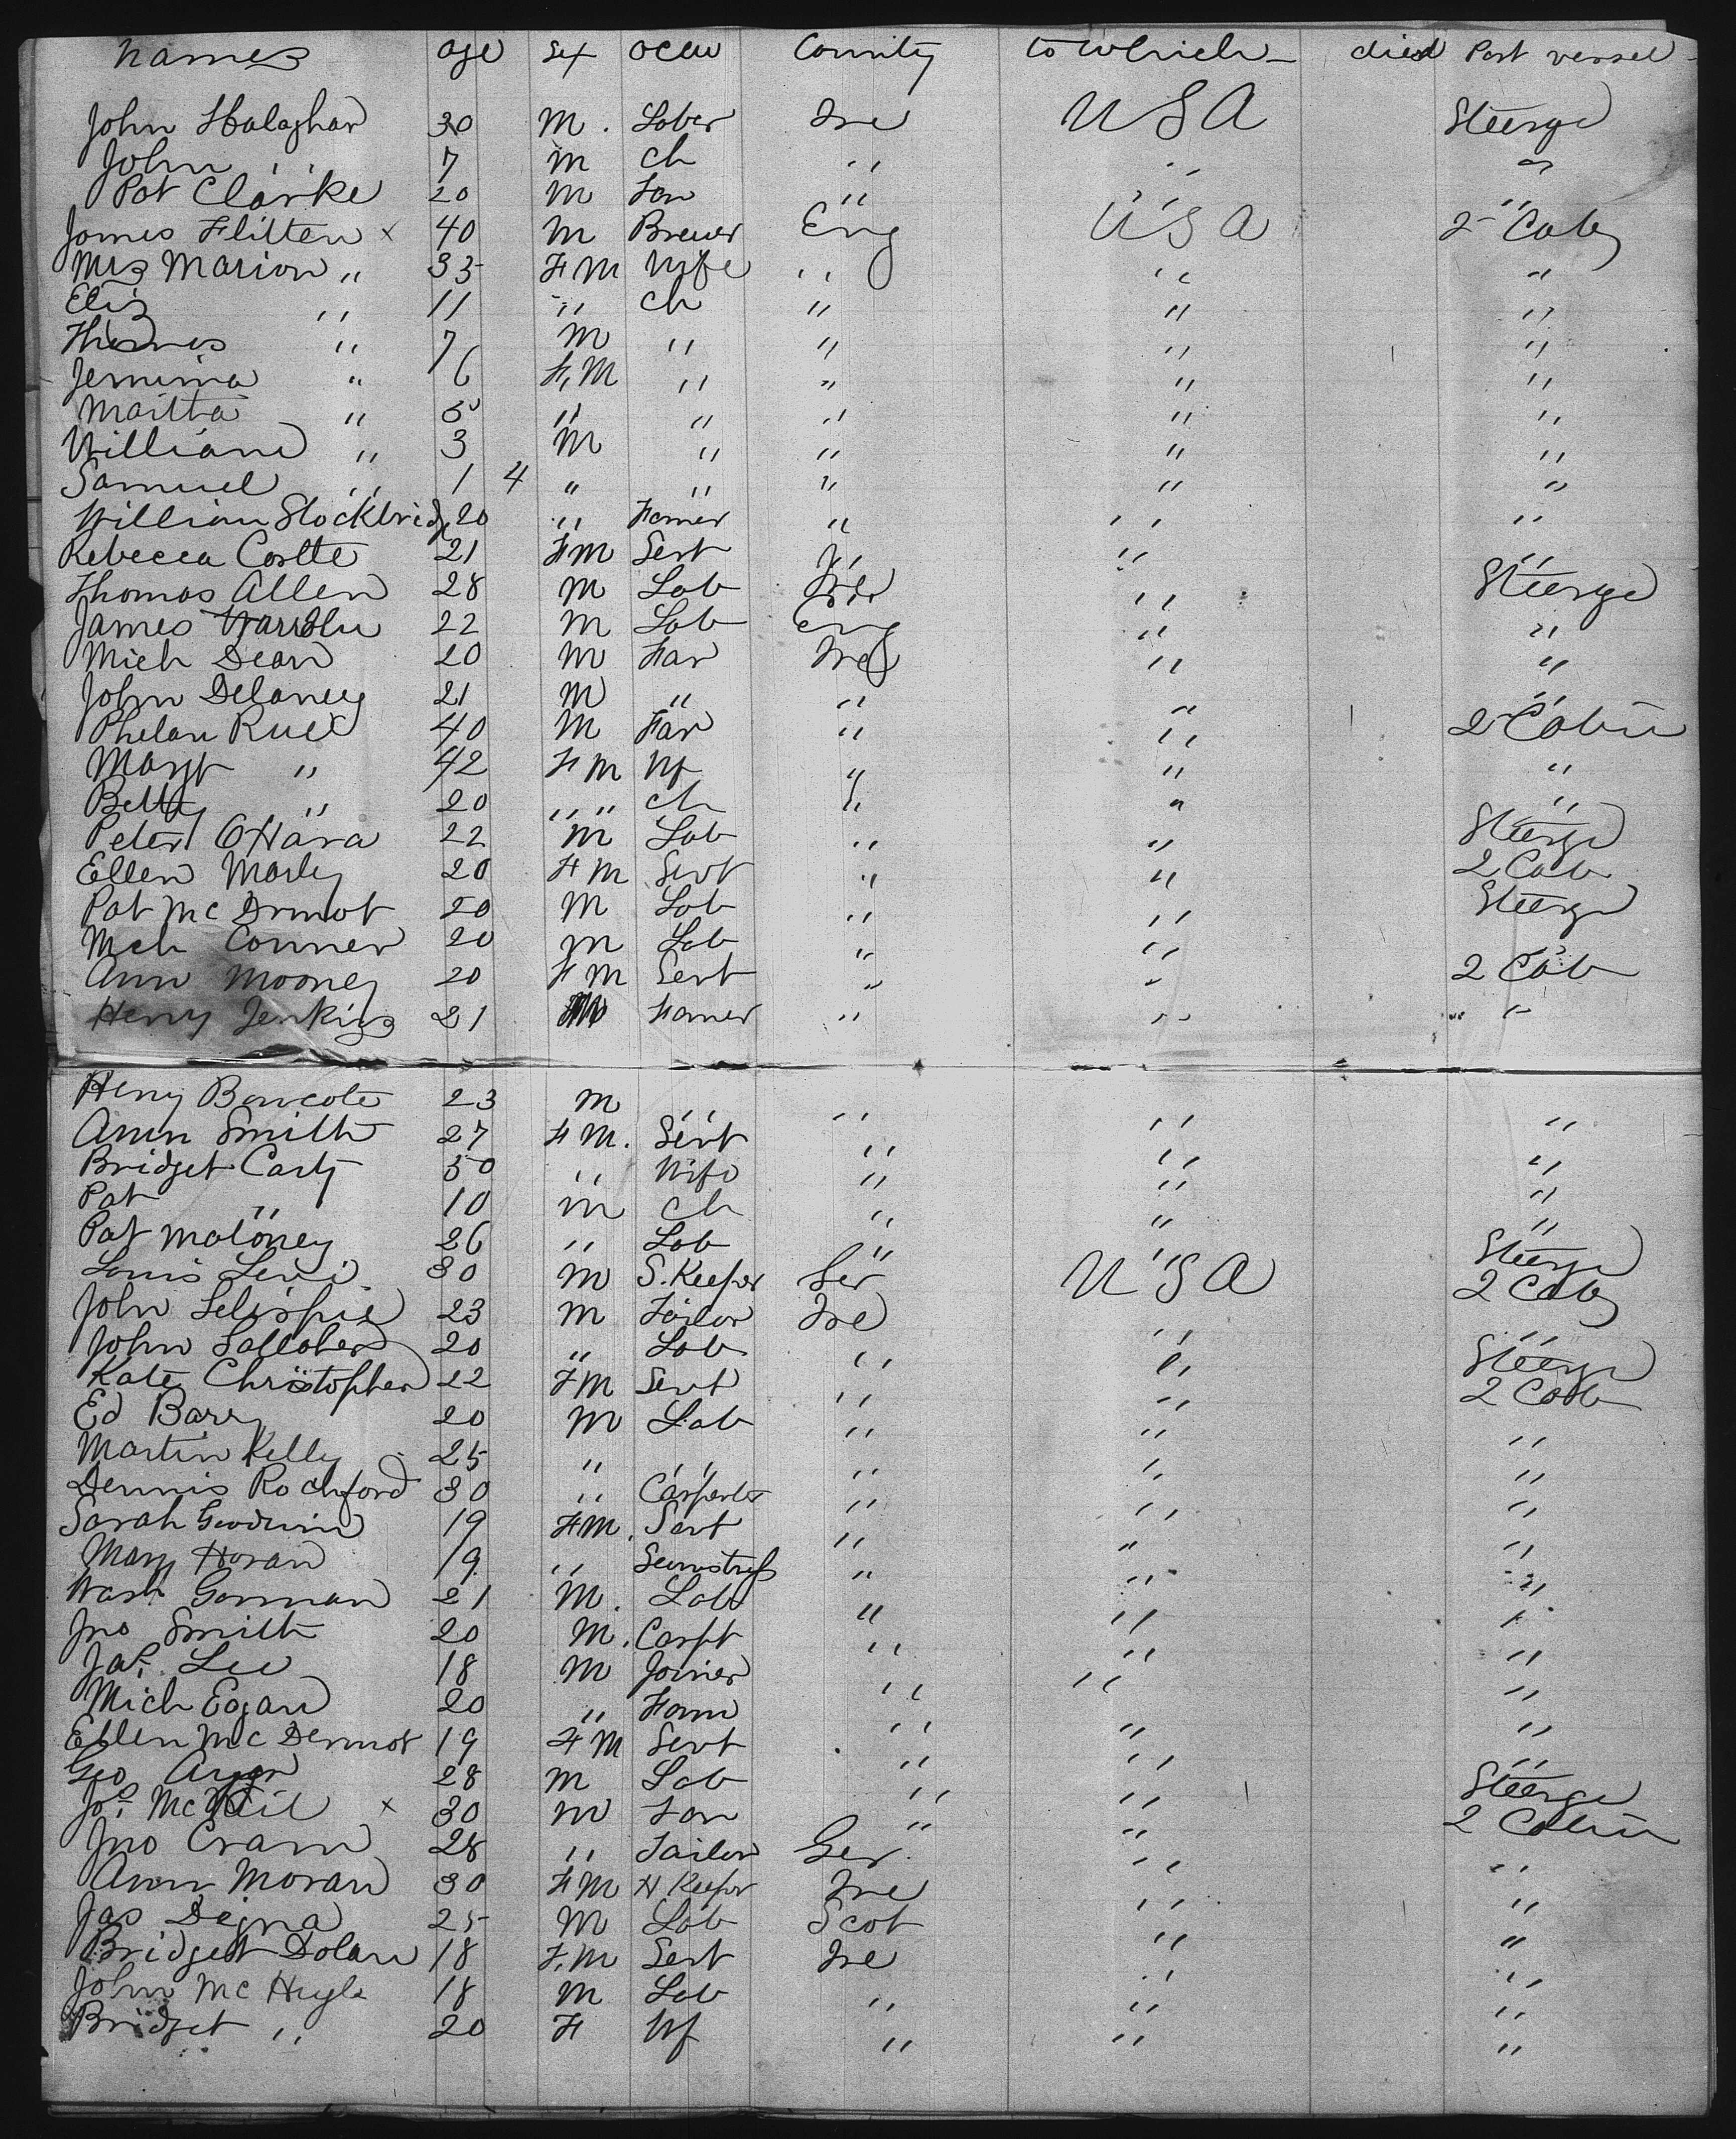 Names age Sex occu Country to which died Part vessel
John Halaghan 30 M. Laber Ire U S A Steerge
John " 7 m ch " " "
Pat Clarke 20 m Far " " "
James Flitten x 40 m Brewer Eng U S A 2 Cab
Mrs Marion " 35 F M Wife " " "
Eliz " 11 " ch " " "
Thomas " 7 m " " " "
Jemima " 6 F, M " " " "
Maitta " 5 " " " " "
William " 3 m " " " "
Samuel " 1 4 " " " " "
William Stockbridg 20 " Famer " " "
Rebecca Costte 21 F M Sert " " "
Thomas Allen 28 m Lab Ire " Steerge
James 22 m Lab Eng " "
Mich Dean 20 m Far Ire " "
John Delaney 21 m " " " "
Phelan Ruee 40 m Far " " 2 Cabin
Margt " 42 F M Wf " " "
Betty " 20 " " ch " " "
Peter O'Hara 22 m Lab " " Steerge
Ellen Marley 20 F M Sevt " " 2 Cab
Pat Mc Drmot 20 m Lab " " Steerge
Mch Conner 20 m Lab " " "
Ann Mooney 20 F M Sert " " 2 Cab
Henry Jenkins 21 M Famer " " " "
Henry Bowcote 23 m " " " "
Ann Smith 27 F M. Sevt " " "
Bridget Carty 50 " Wife " " "
Pat " 10 m ch " " "
Pat Maloney 26 " Lab " " Steerge
Louis Levi 30 m S. Keeper Ger U S A 2 Cab
John Gelispie 23 m Tailor Ire " "
John Gallaher 20 " Lab " " Steerge
Kate Christopher 22 F M Sevt " " 2 Cab
Ed Barry 20 m Lab " " "
Martin Kelly 25 " " " " "
Dennis Rochford 30 " Carpenter " " "
Sarah Goodwin 19 F M. Sevt " " "
Mary Horan 19 " Seamstress " " "
Gorman 21 M. Lab " " "
Jno Smith 20 M. Carpt " " "
Jas. Lee 18 m Joiner " " "
Mich Egan 20 " Farm " " "
Ellen Mc Dermot 19 F M Sevt " " "
Geo 28 m Lab " " Steerge
Jos. McNeil x 30 m Far " " 2 Cabin
Jno Cram 28 " Tailor Ger. " "
Ann Moran 30 F M H Keeper Ire " "
Jas Degna 25 m Lab Scot " "
Bridget Dolan 18 F, M Sert Ire " "
John Mc Hugh 18 m Lab " " "
Bridget " 20 F Wf " " "